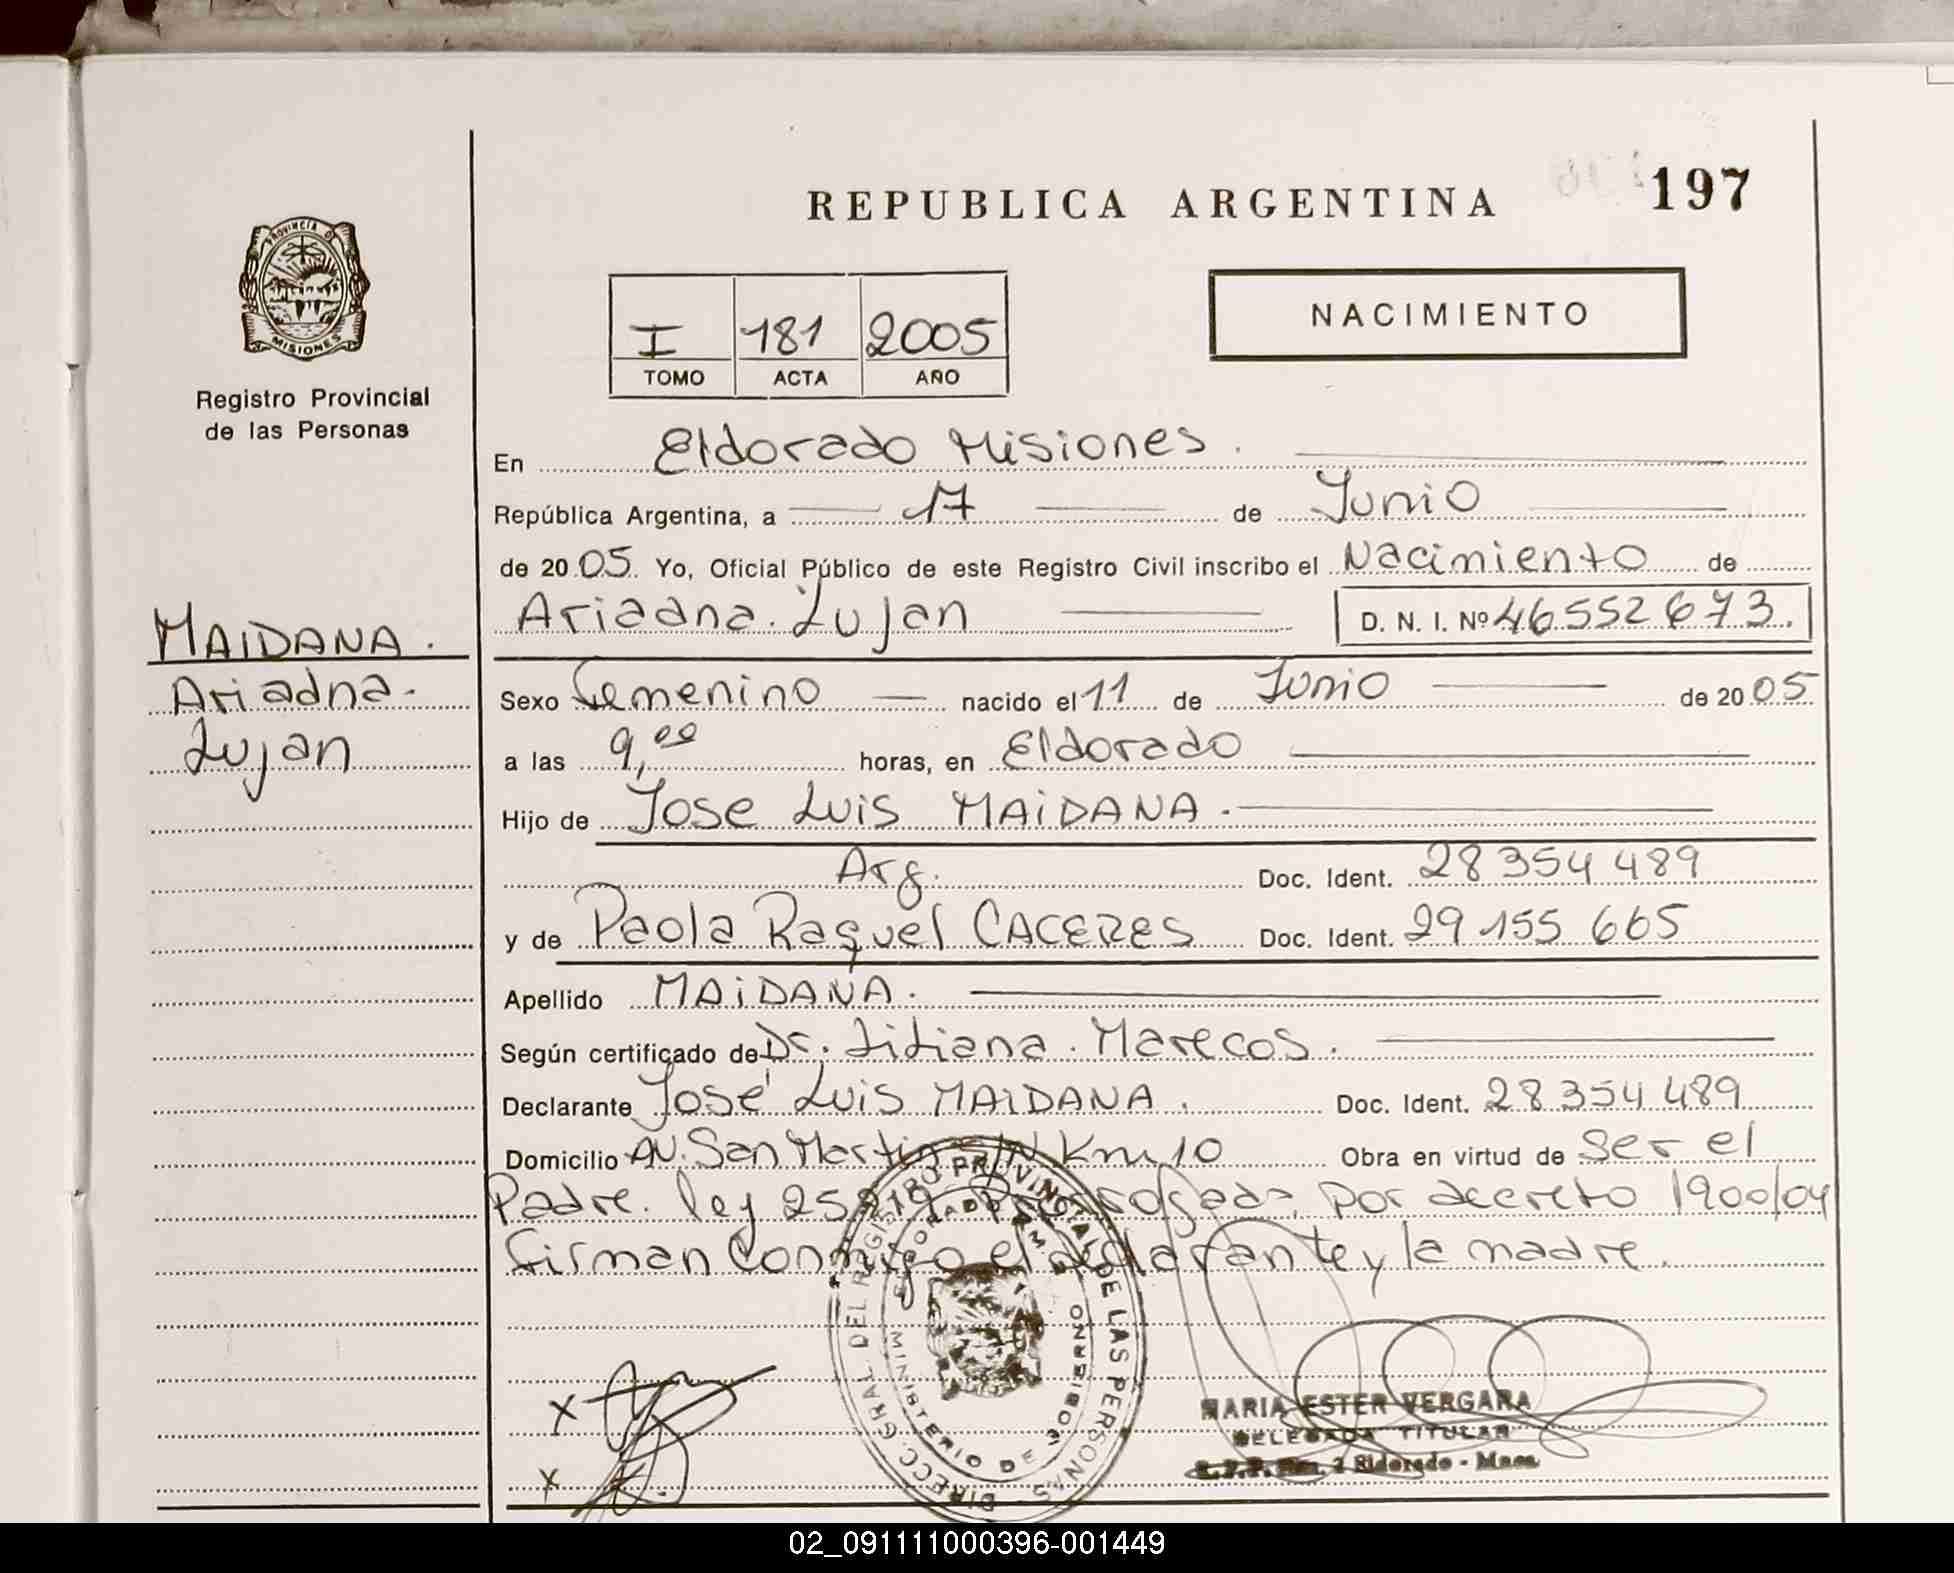 REPUBLICA ARGENTINA
197
PROVINCIA DE
MISIONES
Registro Provincial
de las Personas
NACIMIENTO
I 181 2005
TOMO ACTA AÑO
En Eldorado Misiones.
República Argentina, a 17 de Junio
de 2005 Yo, Oficial Público de este Registro Civil inscribo el Nacimiento de
Ariadna Lujan D. N. I. Nº 46552673.
MAIDANA.
Ariadna.
Lujan
Sexo Femenino nacido el 11 de Junio de 2005
a las 9,00 horas, en Eldorado
Hijo de Jose Luis MAIDANA.
Arg. Doc. Ident. 28 354 489
y de Paola Raquel CACERES Doc. Ident. 29 155 665
Apellido MAIDANA.
Según certificado de Dr. Liliana Marecos.
Declarante José Luis MAIDANA. Doc. Ident. 28 354 489
Domicilio AV. San Martin S/N Km 10 Obra en virtud de Ser el
Padre. ley Prorrogada por decreto 1900/04
firman conmigo el declarante y la madre.
DIRECC. GRAL. DEL REGISTRO PROVINCIAL DE LAS PERSONAS
MINISTERIO DE GOBIERNO
ELDORADO
X
X
MARIA ESTER VERGARA
DELEGADA TITULAR
Eldorado - Mnes.
02_091111000396-001449